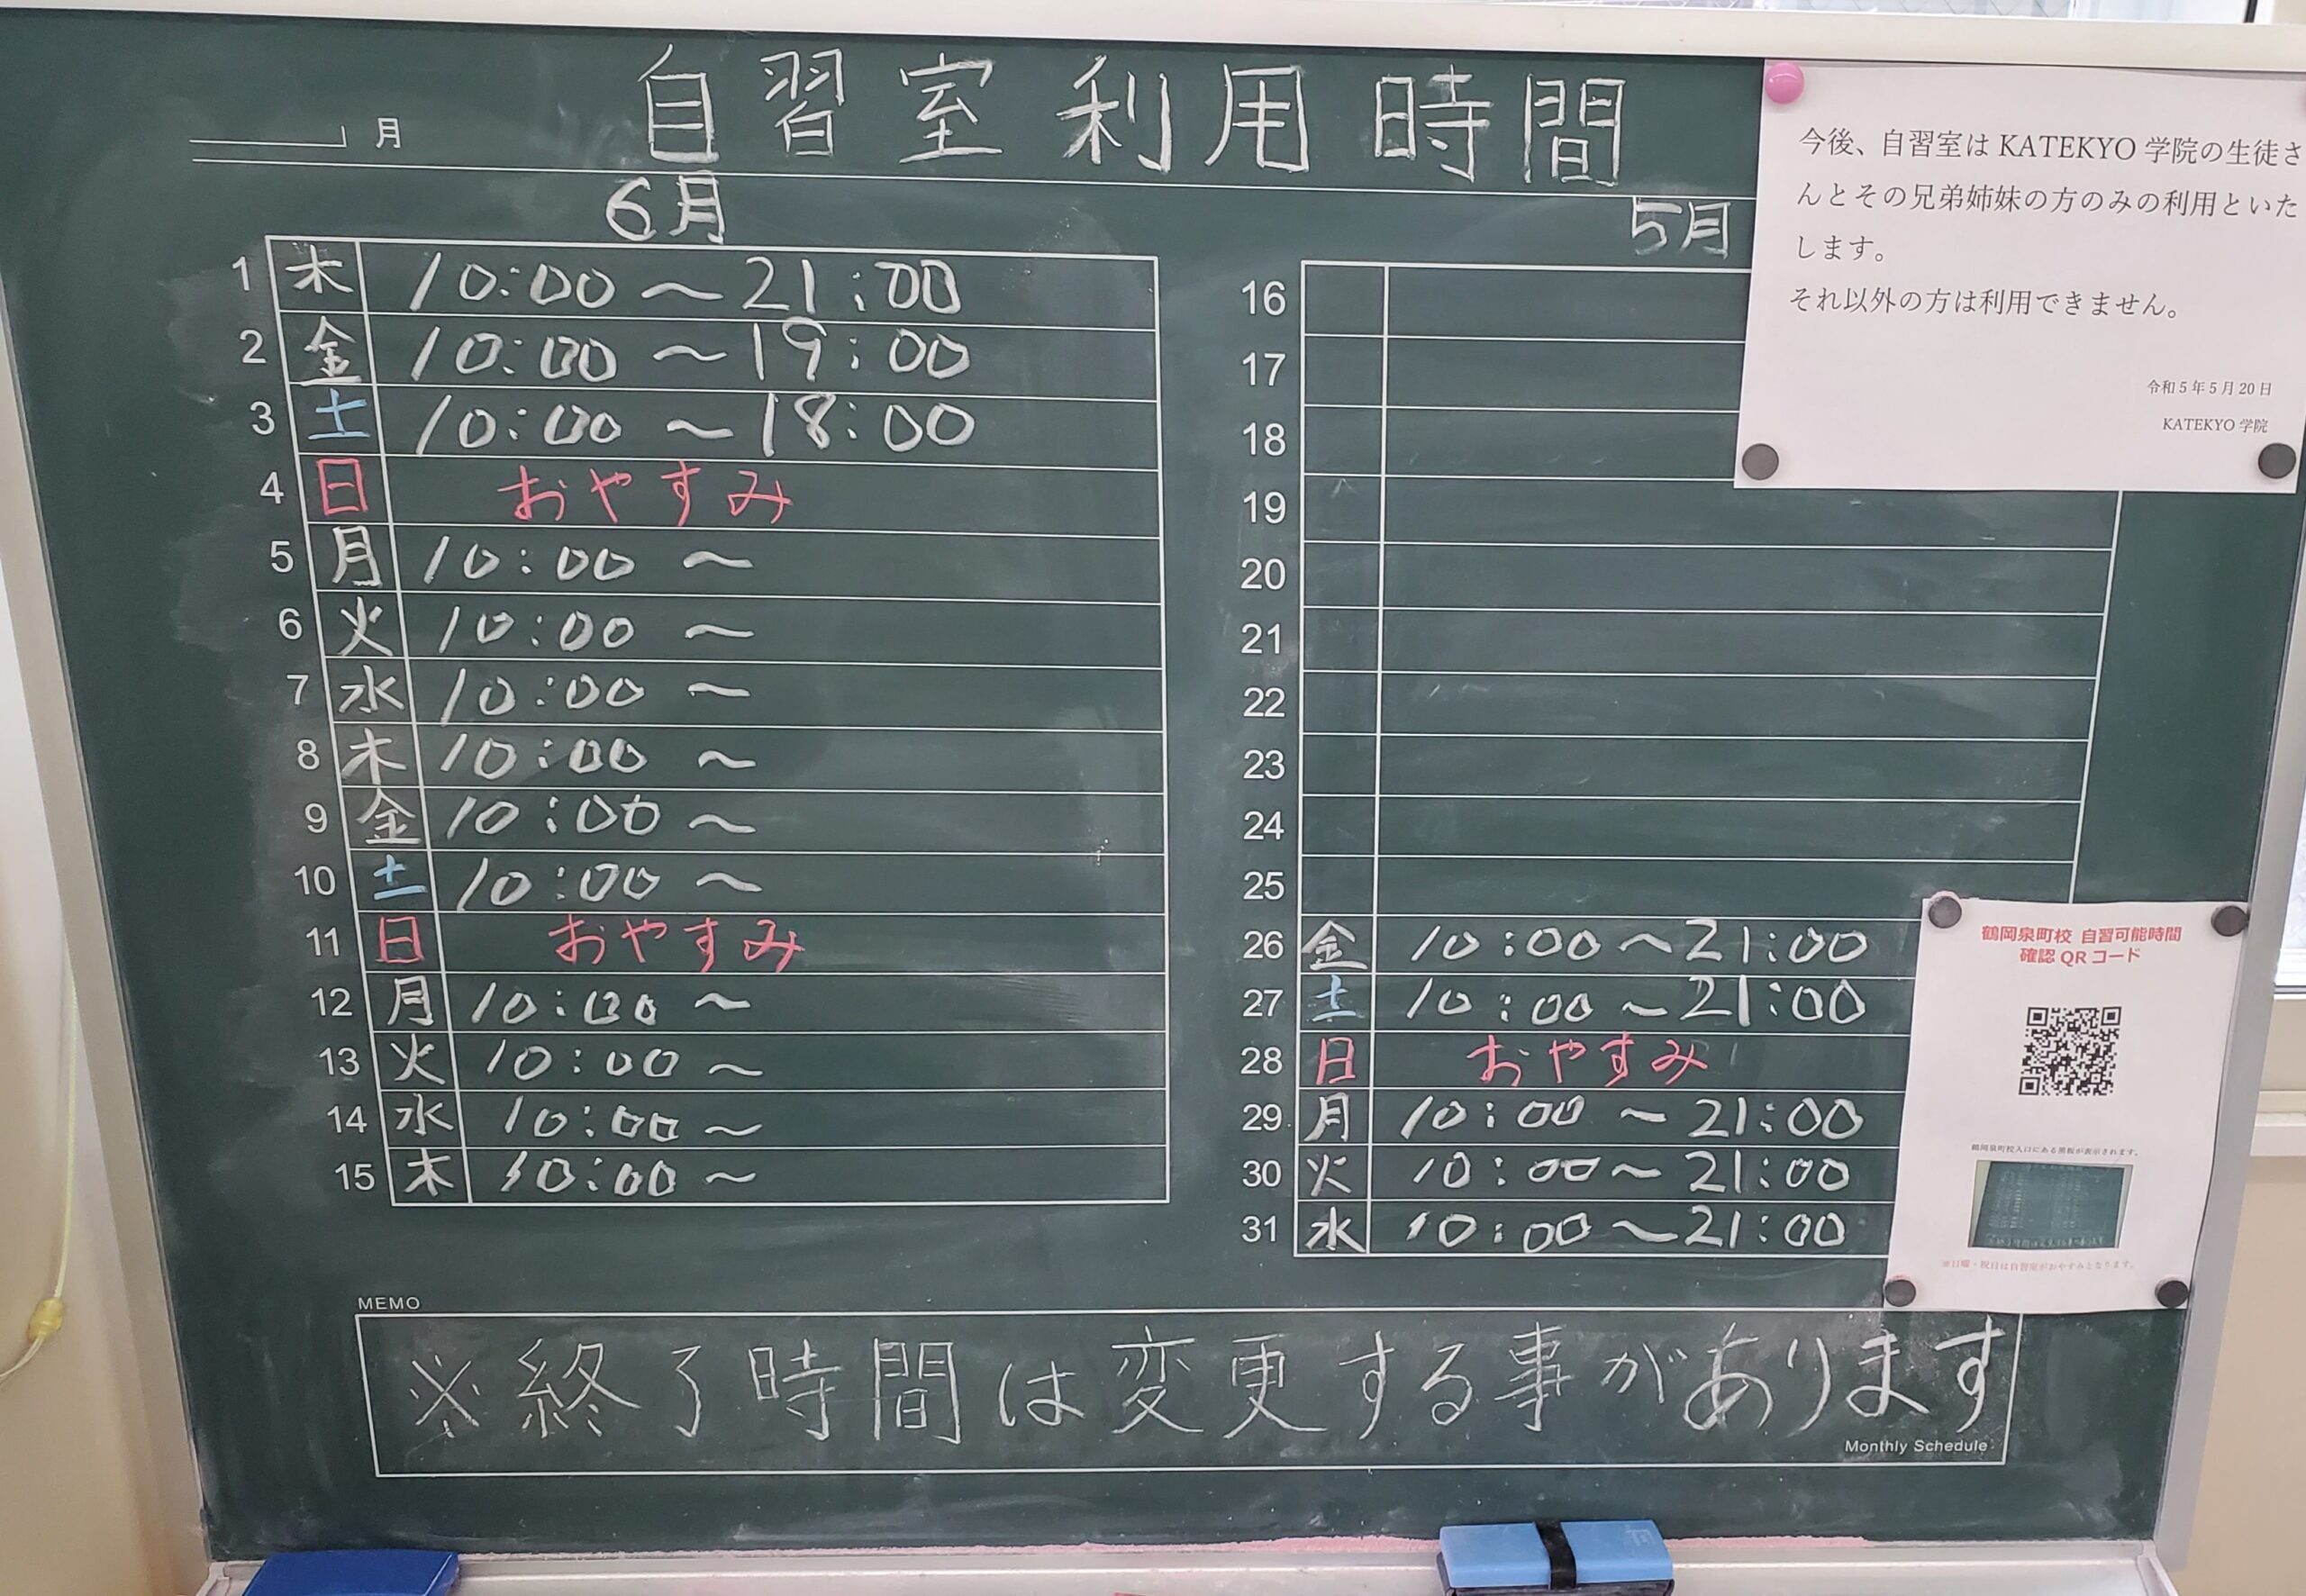 自習室利用時間
月
6月
1 木 10:00 ～ 21:00
2 金 10:00 ～ 19:00
3 土 10:00 ～ 18:00
4 日 おやすみ
5 月 10:00 ～
6 火 10:00 ～
7 水 10:00 ～
8 木 10:00 ～
9 金 10:00 ～
10 土 10:00 ～
11 日 おやすみ
12 月 10:00 ～
13 火 10:00 ～
14 水 10:00 ～
15 木 10:00 ～
5月
16
17
18
19
20
21
22
23
24
25
26 金 10:00 ～ 21:00
27 土 10:00 ～ 21:00
28 日 おやすみ
29 月 10:00 ～ 21:00
30 火 10:00 ～ 21:00
31 水 10:00 ～ 21:00
今後、自習室は KATEKYO 学院の生徒さ
んとその兄弟姉妹の方のみの利用といた
します。
それ以外の方は利用できません。
令和5年5月20日
KATEKYO 学院
鶴岡泉町校 自習可能時間
確認 QR コード
鶴岡泉町校入口にある黒板が表示されます。
※日曜・祝日は自習室がおやすみとなります。
MEMO
※終了時間は変更する事があります
Monthly Schedule